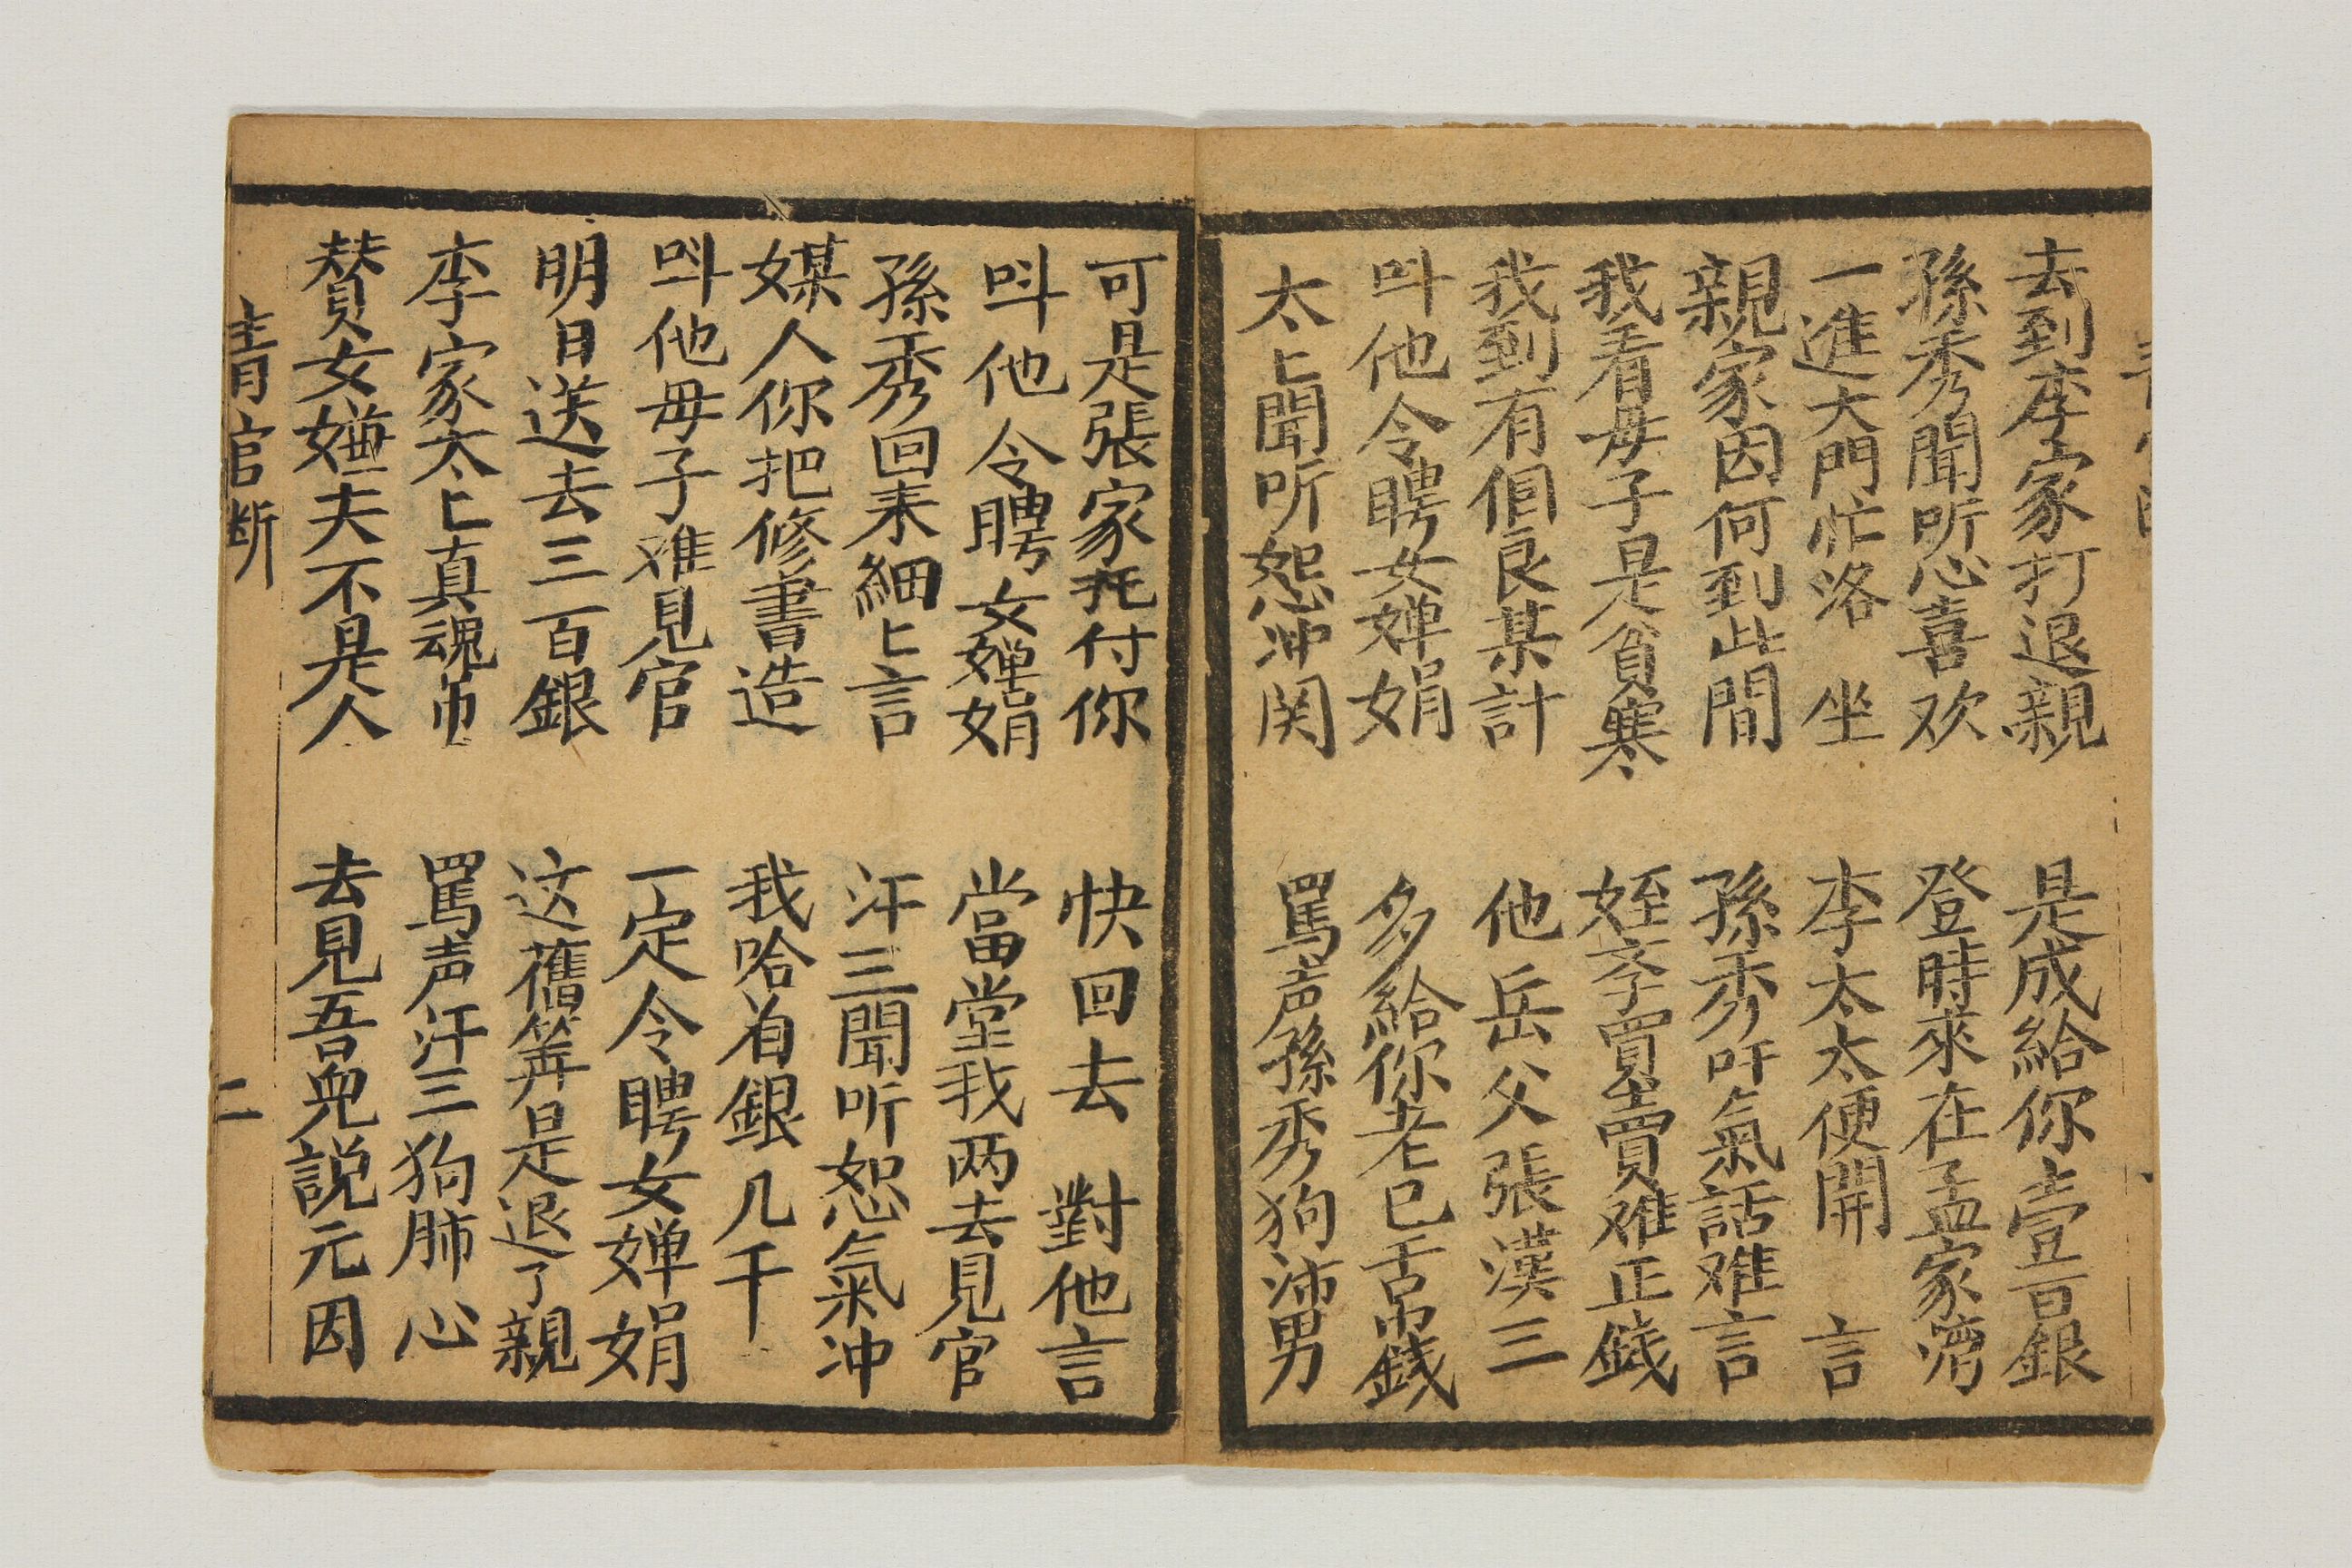 去到李家打退親　是成給你壹百銀
孫秀聞听心喜欢　登時來在孟家灣
一進大門忙洛坐　李太太便開言
親家因何到此間　孫秀吁氣話难言
我看毋子是貧寒　姪李買賣难正錢
我到有個良某計　他岳父張漢三
呌他令聘女婵娟　多給你老巳吊錢
太上聞听怒冲関　罵声孫秀狗沛男
可是張家托付你　快回去對他言
呌他令聘女婵娟　當堂我两去見官
孫秀回来細上言　汗三聞听怒氣冲
媒人你把修書造　我哈有銀几千
呌他毋子难見官　一定令聘女婵娟
明日送去三百銀　这舊筭是退了親
李家太上真魂吊　罵声汗三狗肺心
賛女嫌夫不是人　去見吾児説元因
青官断
二